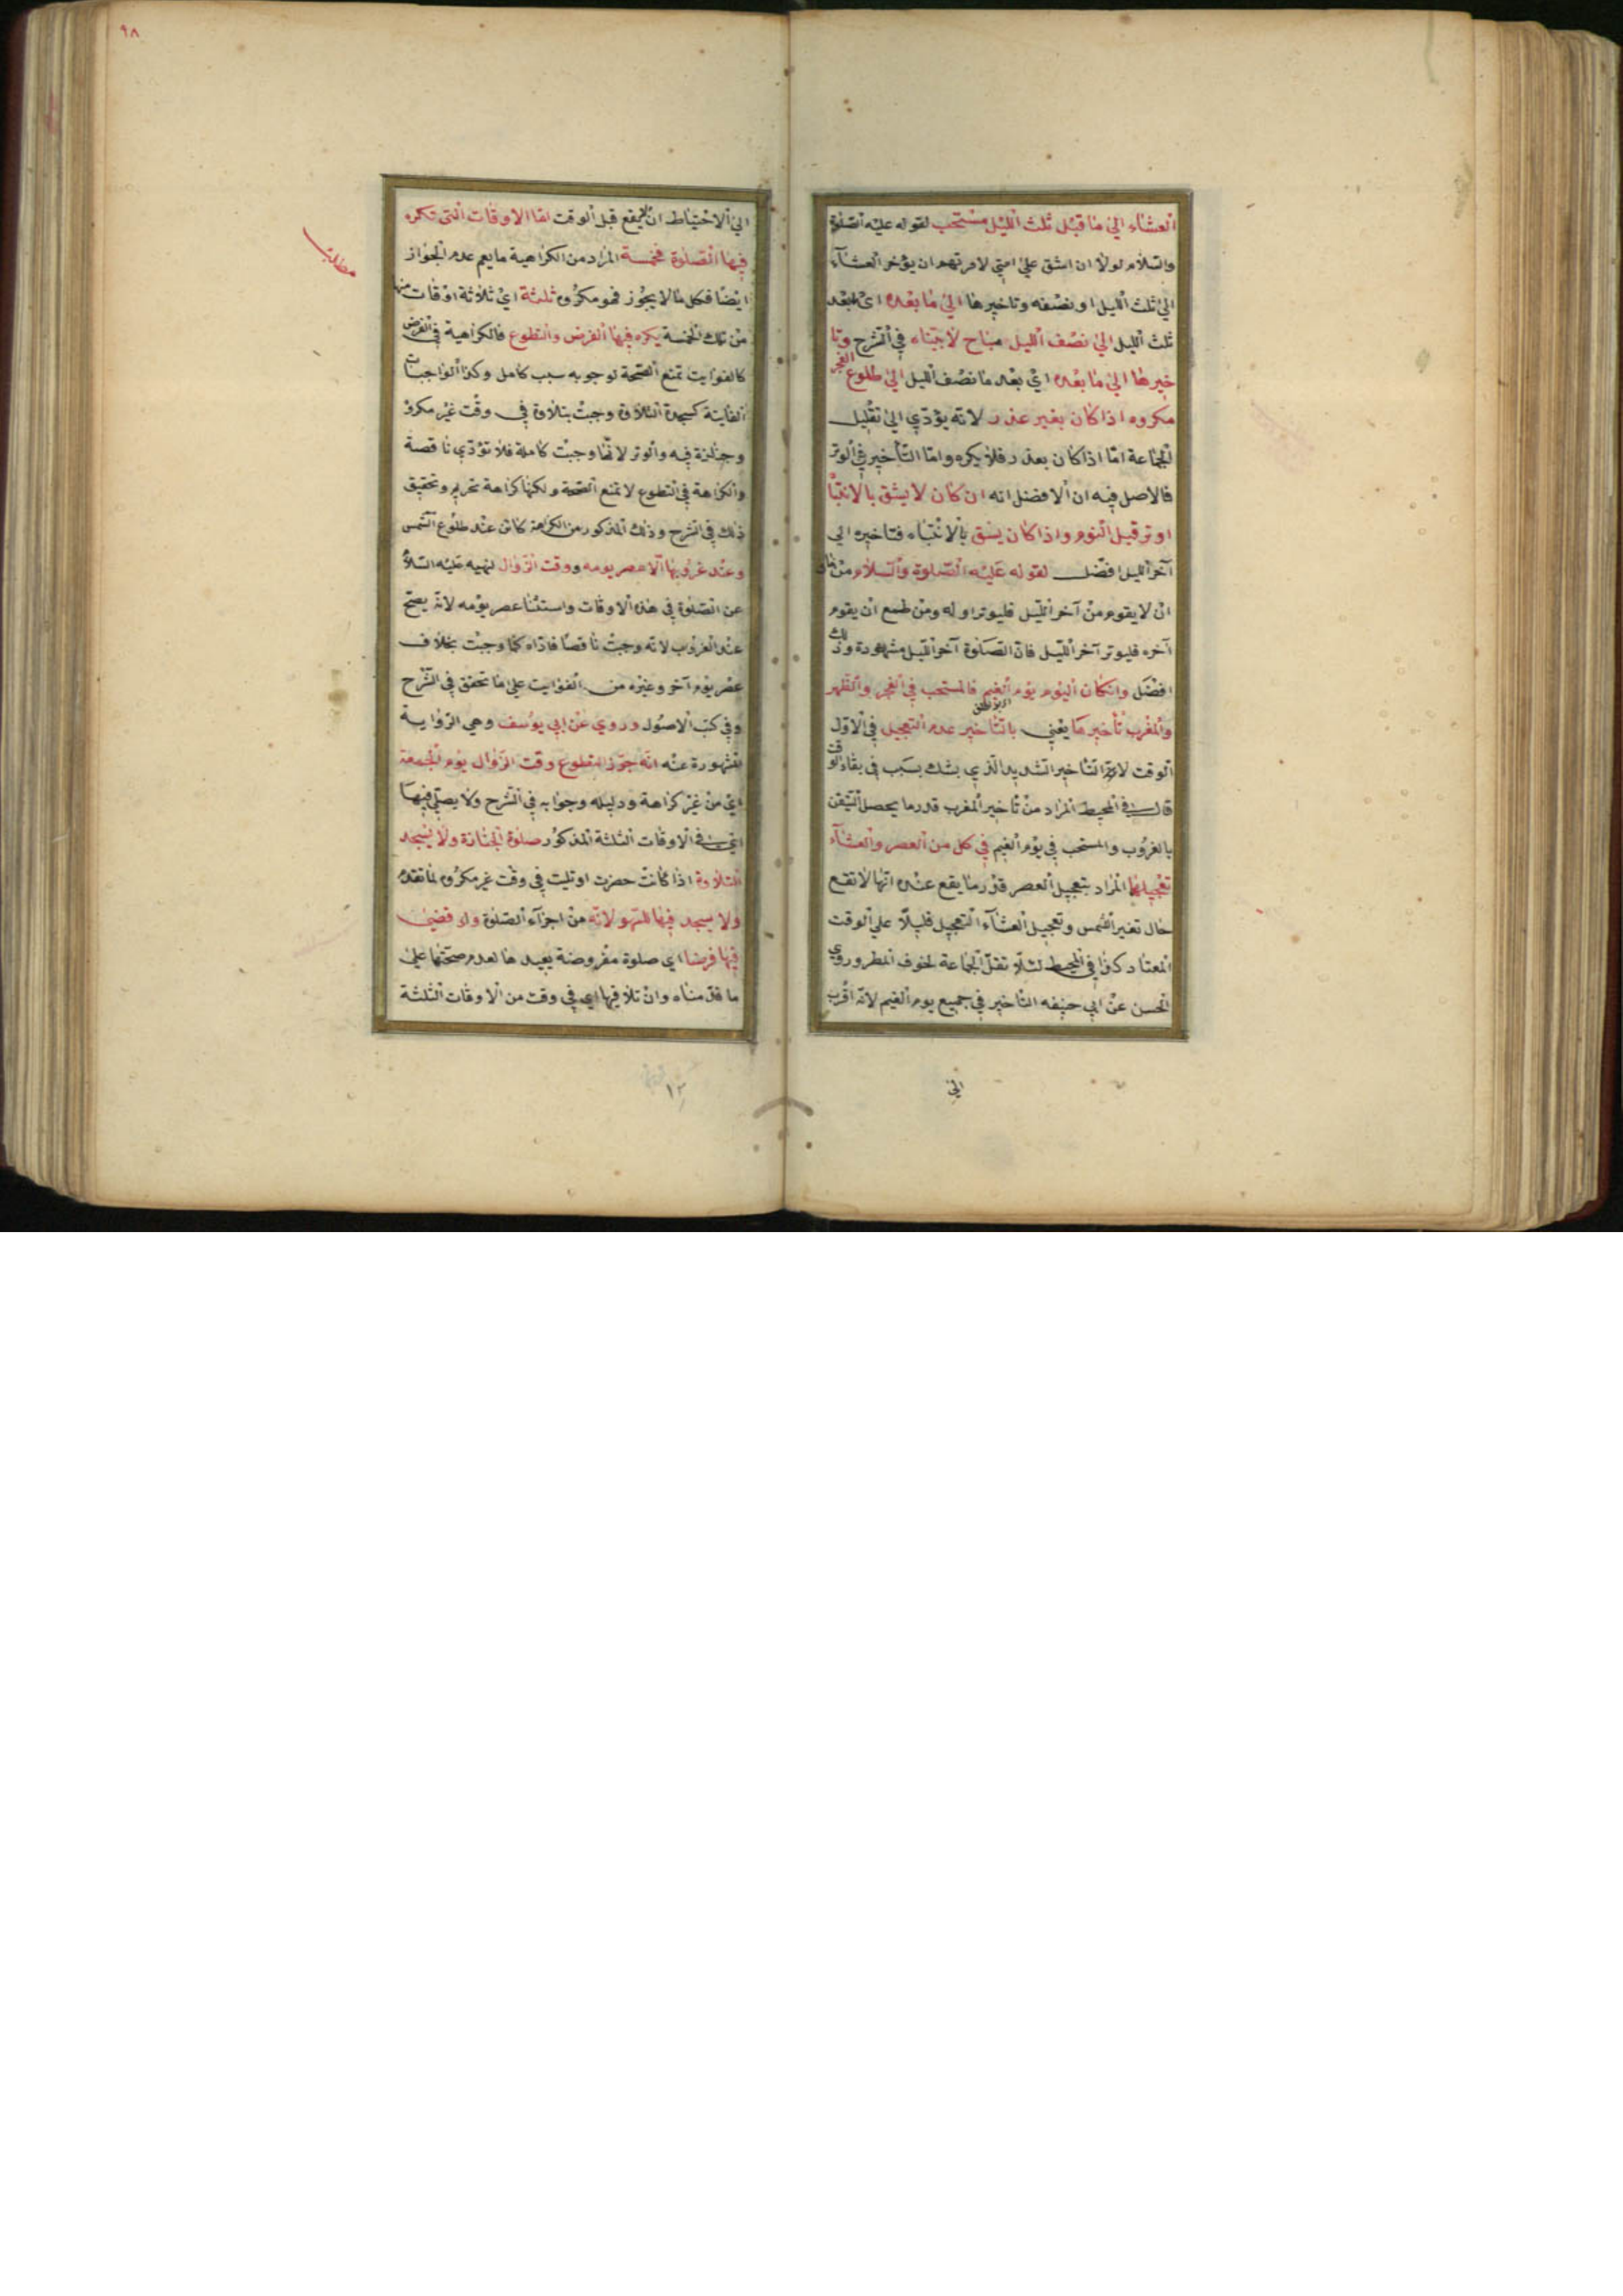 العشاء الي ما قبل ثلث الليل مستحب لقوله عليه الصلوة
والسلام لولا ان اشق علي امتي لامرتهم ان يؤخر العشآء
الي ثلث الليل او نصفه وتاخيرها الي ما بعده اي بعد
ثلث الليل الي نصف الليل مباح لا في الشرح وتا
خيرها الي ما بعده اي بعد ما نصف الليل الي طلوع الفجر
مكروه اذا كان بغير عذر لانه يؤدي الي تقليل
الجماعة امّا اذا كان بعذر فلا يكره وامّا التأخير في الوتر
فالاصل فيه ان الافضل انه ان كان لا يشق بالانتبا
اوتر قبل النوم واذا كان يشق بالانتباه فتاخيره الي
آخر الليل افضل لقوله عليه الصّلوة والسلام من خاف
ان لا يقوم من آخر الليل فليوتر اوله ومن طمع ان يقوم
آخره فليوتر آخر الليل فان الصلوة آخر الليل مشهودة وذلك
افضل وان كان اليوم يوم الغيم فالمستحب في الفجر والظهر
والمغرب تأخيرها يعني بالتأخير عدم التعجيل في الاوّل
الوقت لا التأخير الشديد الذي يشك بسبب في بقاء الوقت
قال في المحيط المراد من تأخير المغرب قدر ما يحصل التيقن
بالغروب والمستحب في يوم الغيم في كل من العصر والعشآء
تعجيلها المراد بتعجيل العصر قدر ما يقع عنده انها لا تقع
حال تغير الشمس وتعجيل العشآء التعجيل قليلًا علي الوقت
المعتاد كذا في المحيط لئلا تقلّ الجماعة لخوف المطر وروي
الحسن عن ابي حنيفه التأخير في جميع يوم الغيم لانه اقرب
الي
٩٨
الي الاحتياط ان يقع قبل الوقت امّا الاوقات التي تكره
فيها الصّلوة فخمسة المراد من الكراهية ما يعم عدم الجواز
ايضا فكل ما لا يجوز فهو مكروه ثلثة اي ثلاثة اوقات منها
من تلك الخمسة يكره فيها الفرض والتطوع فالكراهية في الفرض
كالفوايت تمنع الصّحة لوجوبه سبب كامل وكذا الواجبات
الفايتة كسجدة التلاوة وجبت بتلاوة في وقت غير مكروه
وجنازة فيه والوتر لانّها وجبت كاملة فلا تؤدّي ناقصة
والكراهة في التطوع لا تمنع الصّحة ولكنها كراهة تحريم وتحقيق
ذلك في الشرح وذلك المذكور من الكراهة كائن عند طلوع الشمس
وعند غروبها الا عصر يومه ووقت الزّوال لنهيه عليه السّلام
عن الصّلوة في هذه الاوقات واستثنا عصر يومه لانه يصحّ
عند الغروب لانه وجبت ناقصًا فادّاه كما وجبت بخلاف
عصر يوم آخر وغيره من الفوايت علي ما تحقق في الشّرح
وفي كتب الاصول وروي عن ابي يوسف وهي الرّواية
المشهورة عنه انه جوّز التطوع وقت الزّوال يوم الجمعة
اي من غير كراهة ودليله وجوابه في الشّرح ولا يصلّي فيها
اي في الاوقات الثلثة المذكور صلوة الجنازة ولا يسجد
للتلاوة اذا كانت حضرت او تليت في وقت غير مكروه لما تقدم
ولا يسجد فيها للسّهو لانّه من اجزآء الصّلوة ولو قضي
فيها فرضا اي صلوة مفروضة يعيدها لعدم صحتها علي
ما قدّمناه وان تلا فيها اي في وقت من الاوقات الثلثة
مطلب
١٢